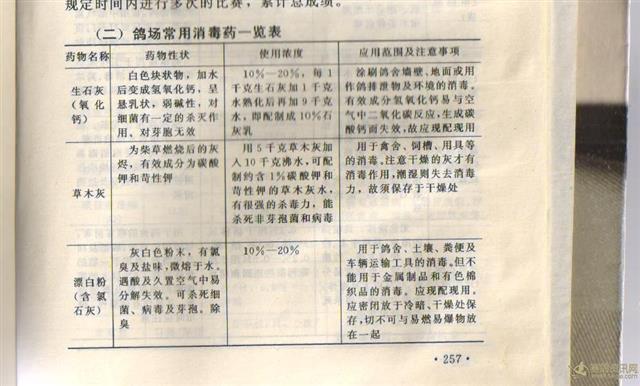 规定时间内进行多次的比赛，累计总成绩。
（二）鸽场常用消毒药一览表
药物名称 药物性状 使用浓度 应用范围及注意事项
生石灰（氧化钙）
白色块状物，加水
后变成氢氧化钙，呈
悬乳状，弱碱性，对
细菌有一定的杀灭作
用，对芽胞无效
10%—20%，每1
千克生石灰加1千克
水熟化后再加9千克
水，即配制成10%石
灰乳
涂刷鸽舍墙壁、地面或用
作鸽排泄物及环境的消毒。
有效成分氢氧化钙易与空
气中二氧化碳反应，生成碳
酸钙而失效，故应现配现用
草木灰
为柴草燃烧后的灰
烬，有效成分为碳酸
钾和苛性钾
用5千克草木灰加
入10千克沸水，可配
制约含1%碳酸钾和
苛性钾的草木灰水，
有很强的杀毒力，能
杀死非芽孢菌和病毒
用于禽舍、饲槽、用具等
的消毒。注意干燥的灰才有
消毒作用，潮湿则失去消毒
力，故须保存于干燥处
漂白粉
（含氯
石灰）
灰白色粉末，有氯
臭及盐味，微熔于水。
遇酸及久置空气中易
分解失效。可杀死细
菌、病毒及芽孢。除
臭
10%—20%
用于鸽舍、土壤、粪便及
车辆运输工具的消毒。但不
能用于金属制品和有色棉
织品的消毒。应现配现用。
应密闭放于冷暗、干燥处保
存，切不可与易燃易爆物放
在一起
·257·